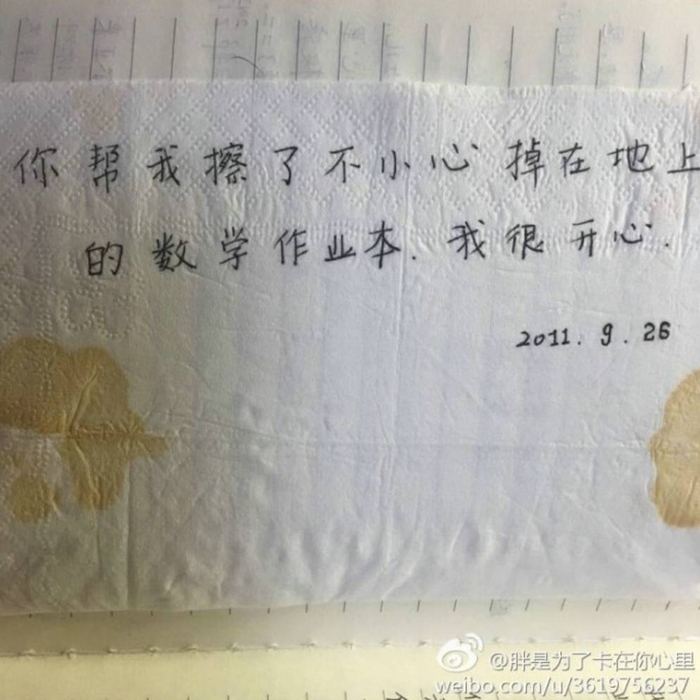 你帮我擦了不小心掉在地上
的数学作业本.我很开心.
2011.9.26
@胖是为了卡在你心里
weibo.com/u/3619756237